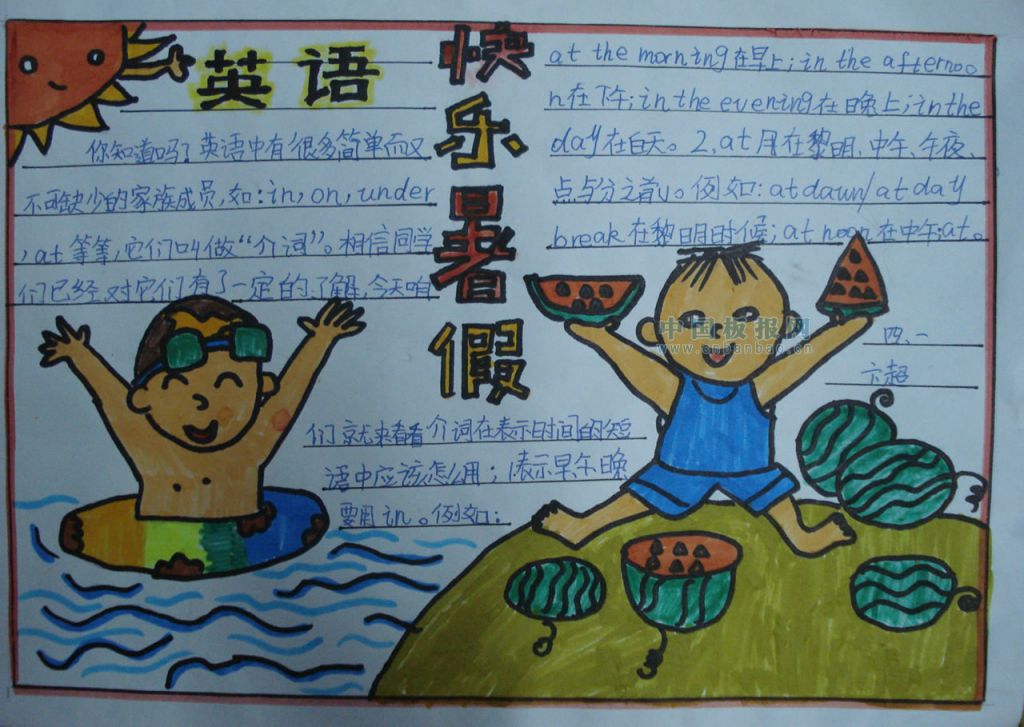 英语
快乐暑假
你知道吗?英语中有很多简单而又
不可缺少的家族成员,如:in,on,under
,at等等,它们叫做“介词”。相信同学
们已经对它们有了一定的了解,今天咱
们就来看看介词在表示时间的短
语中应该怎么用;1表示早午晚
要用in。例如:
at the morning在早上;in the afternoo
n在下午;in the evening在晚上;in the
day在白天。2,at用在黎明、中午、午夜、
点与分之前。例如:at dawn/at day
break在黎明时候;at noon在中午;at。
四、一
卞超
中国板报网
www.cnbanbao.cn